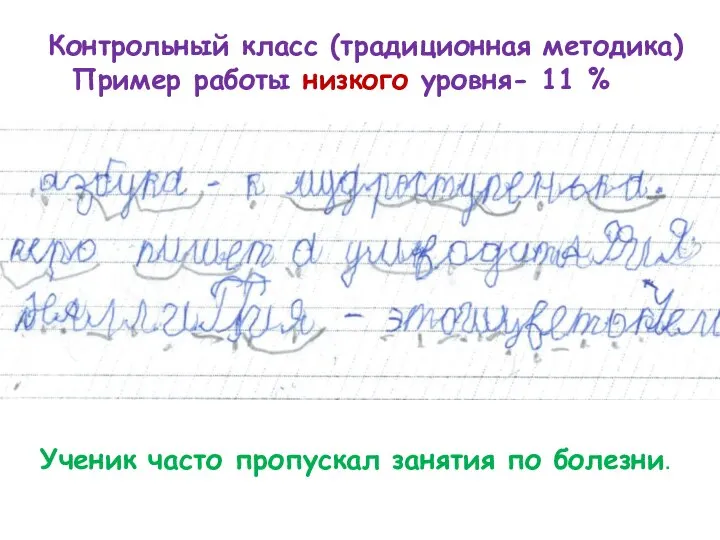 Контрольный класс (традиционная методика)
Пример работы низкого уровня- 11 %
азбука - к мудроступенька.
перо пишет а ум водит.
каллиграфия - это
Ученик часто пропускал занятия по болезни.